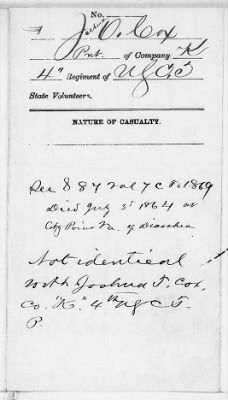 No.
J. O. Cox
Pvt. of Company K
4" Regiment of U.S.C.T.
State Volunteers.
NATURE OF CASUALTY.
See 887 Vol 7 C 1869
Died July 3d 1864 at
City Point Va. of Diarrhea
Not identical
with Joshua T. Cox,
Co. "K," 4th U S C T
P.